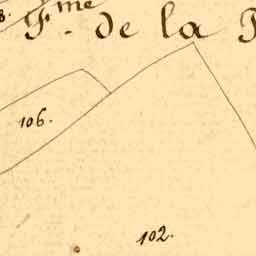 F.me de la
106.
102.